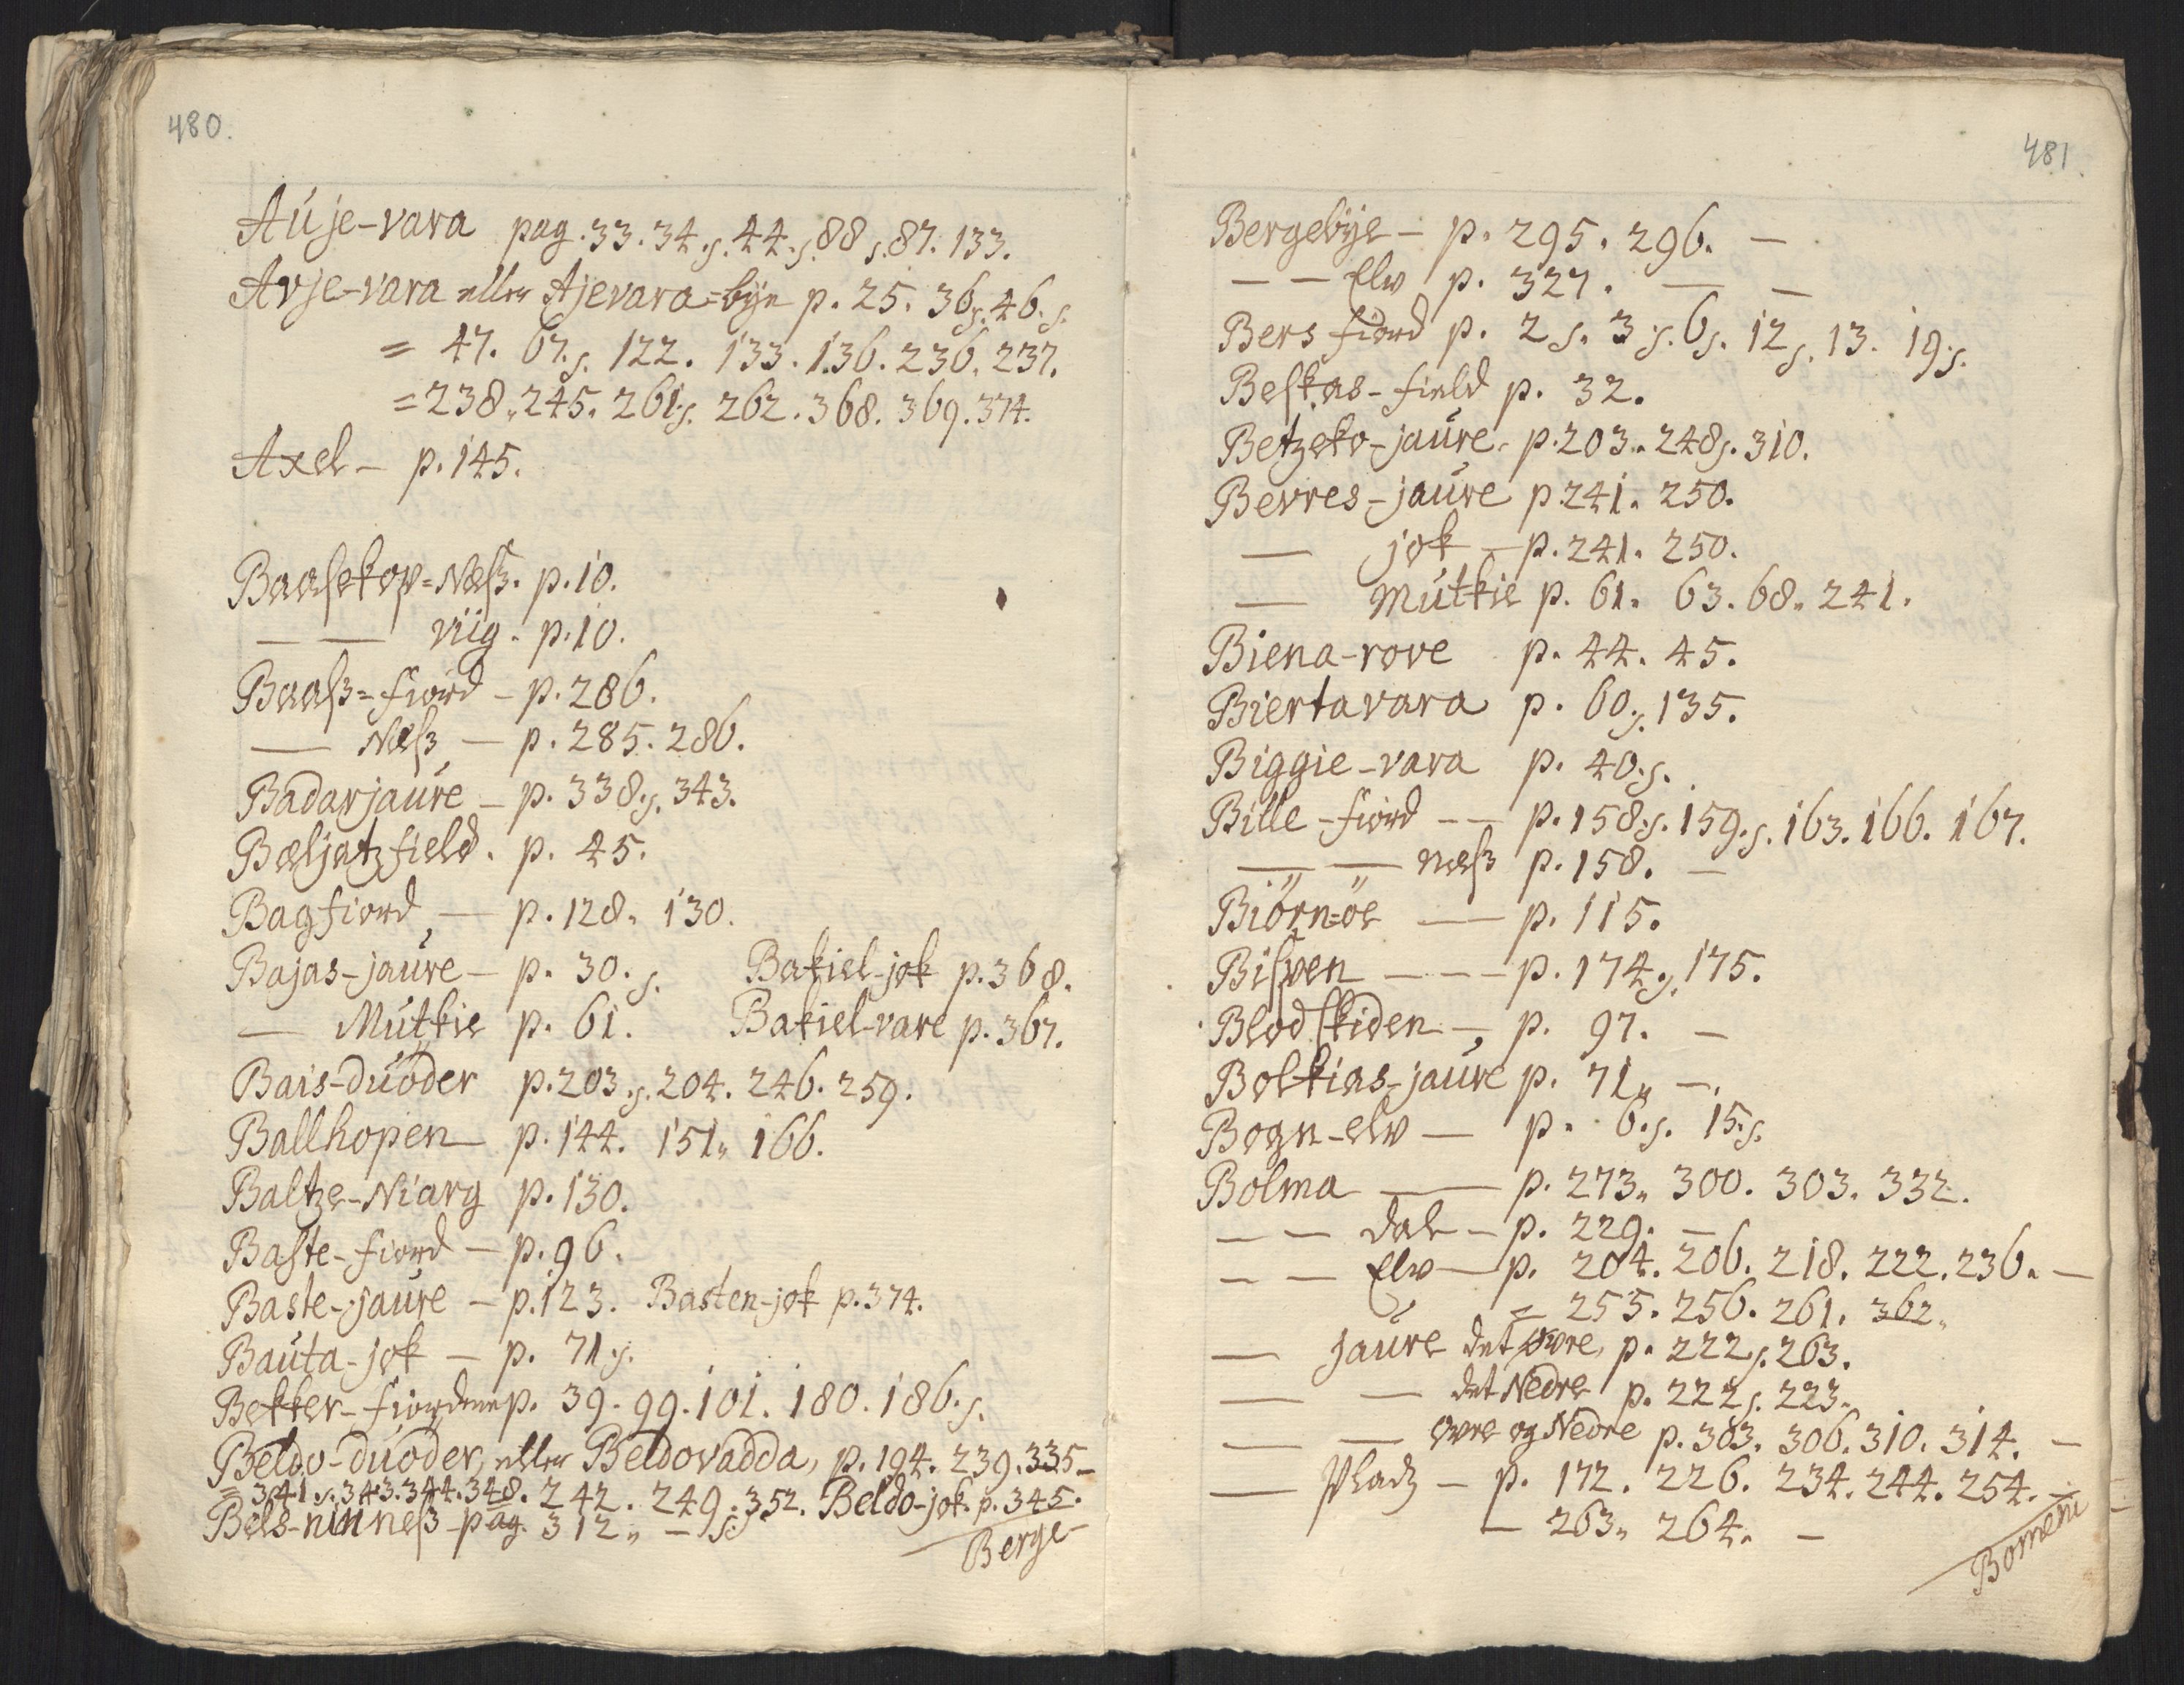 480.
Auje-vara pag. 33. 34.s. 44.s. 88 s. 87. 133.
Avje-vara eller Ajevara=bÿe p. 25. 36s. 46.s.
= 47. 67.s. 122. 133. 136. 236. 237.
= 238. 245. 261s. 262. 368. 369. 374.
Axel – p. 145.
Baasekop=Næss. p. 10.
— — Viig. p. 10.
Baass=fiord – p. 286.
— Næss – p. 285. 286.
Badarjaure – p. 338.s. 343.
Bæljatzfield. p. 45.
Bagfiord, — p. 128. 130.
Bajas-jaure – p. 30.s. Bakiel-jok p. 368.
— Mutkie p. 61. Bakiel-vare p. 367.
Bais-duöder p. 203.s. 204. 246. 259.
Ballhopen p. 144. 151. 166.
Baltze-Niarg p. 130.
Baste-fiord – p. 96.
Baste-jaure – p. 123. Basten-jok p. 374.
Bauta-jok – p. 71.s.
Bekker-fiorden p. 39. 99. 101. 180. 186.s.
Beldo-duoder, eller Beldovadda, p. 194. 239. 335 –
= 341.s. 343. 344. 348. 242. 249. 352. Beldo-jok. p. 345.
Bels-nin ness pag. 312. – s.
Berge-
481.
Bergebÿe – p. 295. 296. —
— — Elv p. 327. — —
Bers fiord p. 2 s. 3 s. 6s. 12 s. 13. 19 s.
Beskas-field p. 32.
Betzeko-jaure. p. 203. 248s. 310.
Bevres-jaure p 241. 250.
— jok – p. 241. 250.
— Mutkie p. 61. 63. 68. 241.
Biena-rove p. 44. 45.
Biertavara p. 60.s. 135.
Biggie-vara p. 40.s.
Bille-fiord – – p. 158.s. 159.s. 163. 166. 167.
— — næss p. 158. —
Biörn=öe — p. 115.
Bispen – – – p. 174.s. 175.
Blodskiden – p. 97. —
Bolkias-jaure p. 71. –.
Bogn-elv — p. 6.s. 15.s.
Bolma — p. 273. 300. 303. 332.
— — dal – p. 229. —
— — Elv – p. 204. 206. 218. 222. 236. —
= 255. 256. 261. 362.
— Jaure det øvre, p. 222s. 263.
— — det Nedre p. 222s. 223.
— — øvre og Nedre p. 303. 306. 310. 314. —
— Pladz – p. 172. 226. 234. 244. 254. –
– 263. 264. –
Bomeni